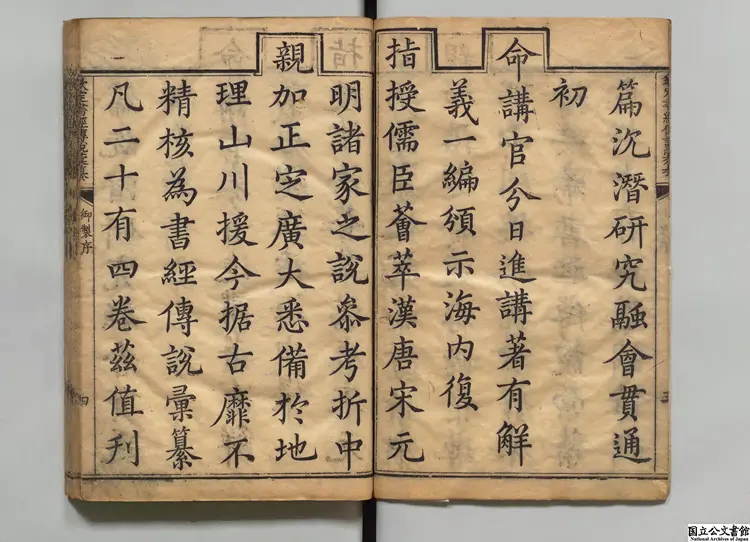 篇沉潛研究融會貫通
初
命講官分日進講著有解
義一編頒示海內復
指授儒臣薈萃漢唐宋元
明諸家之說參考折中
親
加正定廣大悉備於地
理山川援今据古靡不
精核為書經傳說彙纂
凡二十有四卷茲值刊
欽定書經傳說彙纂
御製序
四
国立公文書館
National Archives of Japan